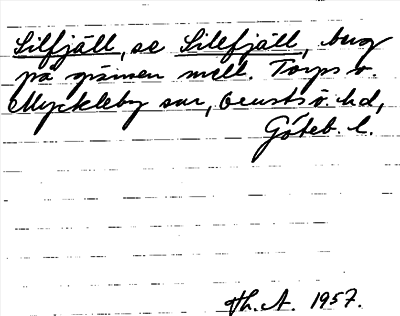 Silfjäll, se Silefjäll, berg
på gränsen mell. Torps o.
Myckleby snr, Orusts ö. hd,
Göteb. l.
Hh. A. 1957.